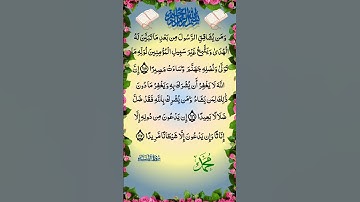 وَمَن يُشَاقِقِ الرَّسُولَ مِن بَعْدِ مَا تَبَيَّنَ لَهُ
الْهُدَىٰ وَيَتَّبِعْ غَيْرَ سَبِيلِ الْمُؤْمِنِينَ نُوَلِّهِ مَا
تَوَلَّىٰ وَنُصْلِهِ جَهَنَّمَ وَسَاءَتْ مَصِيرًا ۝ إِنَّ
اللَّهَ لَا يَغْفِرُ أَن يُشْرَكَ بِهِ وَيَغْفِرُ مَا دُونَ
ذَٰلِكَ لِمَن يَشَاءُ وَمَن يُشْرِكْ بِاللَّهِ فَقَدْ ضَلَّ
ضَلَالًا بَعِيدًا ۝ إِن يَدْعُونَ مِن دُونِهِ إِلَّا
إِنَاثًا وَإِن يَدْعُونَ إِلَّا شَيْطَانًا مَّرِيدًا ۝
محمد